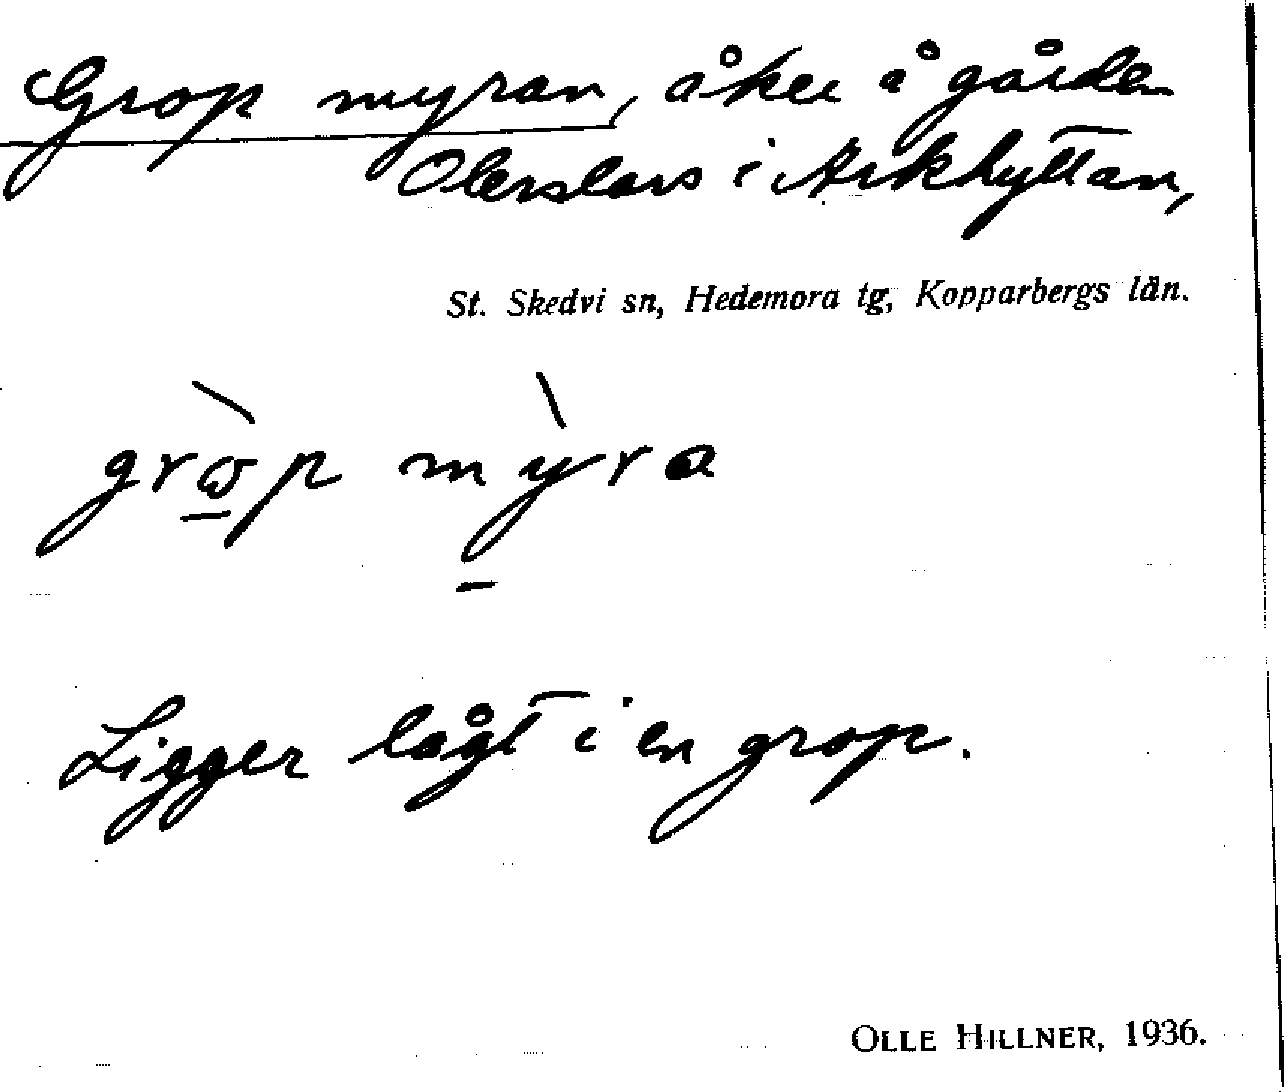 Grop myran, åker å gården
Olerslars i Arkhyttan,
St. Skedvi sn, Hedemora tg, Kopparbergs län.
Ligger lågt i en grop.
OLLE HILLNER, 1936.